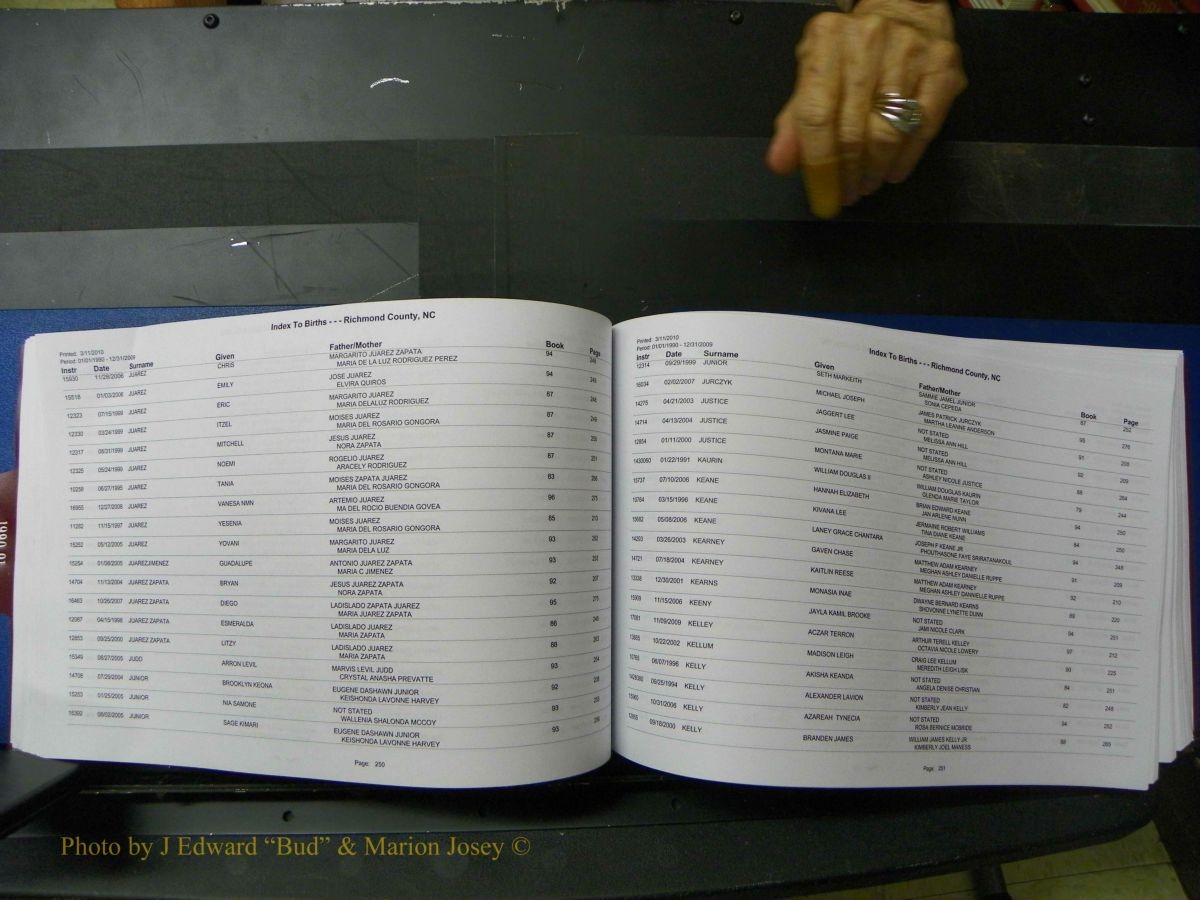 Index To Births - - - Richmond County, NC
Printed: 3/11/2010
Period: 01/01/1990 - 12/31/2009
Instr Date Surname Given Father/Mother Book Page
15930 11/28/2006 JUAREZ CHRIS MARGARITO JUAREZ ZAPATA 94
MARIA DE LA LUZ RODRIGUEZ PEREZ
15518 01/03/2006 JUAREZ EMILY JOSE JUAREZ 94
ELVIRA QUIROS
12323 07/15/1999 JUAREZ ERIC MARGARITO JUAREZ 87
MARIA DELALUZ RODRIGUEZ
12330 03/24/1999 JUAREZ ITZEL MOISES JUAREZ 87
MARIA DEL ROSARIO GONGORA
12317 JUAREZ MITCHELL JESUS JUAREZ 87
NORA ZAPATA
12325 05/24/1999 JUAREZ NOEMI ROGELIO JUAREZ 87
ARACELY RODRIGUEZ
10258 06/27/1995 JUAREZ TANIA MOISES ZAPATA JUAREZ 83
MARIA DEL ROSARIO GONGORA
16955 12/27/2008 JUAREZ VANESA NMN ARTEMIO JUAREZ 96
MA DEL ROCIO BUENDIA GOVEA
11282 11/15/1997 JUAREZ YESENIA MOISES JUAREZ 85
MARIA DEL ROSARIO GONGORA
15252 05/12/2005 JUAREZ YOVANI MARGARITO JUAREZ 93
MARIA DELA LUZ
15254 01/06/2005 JUAREZJIMENEZ GUADALUPE ANTONIO JUAREZ ZAPATA 93
MARIA C JIMENEZ
14704 11/13/2004 JUAREZ ZAPATA BRYAN JESUS JUAREZ ZAPATA 92
NORA ZAPATA
16463 10/26/2007 JUAREZ ZAPATA DIEGO LADISLADO ZAPATA JUAREZ 95
MARIA JUAREZ ZAPATA
04/15/1998 JUAREZ ZAPATA ESMERALDA LADISLADO JUAREZ 86
MARIA ZAPATA
12853 09/25/2000 JUAREZ ZAPATA LITZY LADISLADO JUAREZ 88
MARIA ZAPATA
15349 08/27/2005 JUDD ARRON LEVIL MARVIS LEVIL JUDD 93
CRYSTAL ANASHA PREVATTE
14708 07/29/2004 JUNIOR BROOKLYN KEONA EUGENE DASHAWN JUNIOR 92
KEISHONDA LAVONNE HARVEY
15253 01/25/2005 JUNIOR NIA SAMONE NOT STATED 93
WALLENIA SHALONDA MCCOY
JUNIOR SAGE KIMARI EUGENE DASHAWN JUNIOR 93
KEISHONDA LAVONNE HARVEY
Page: 250
Index To Births - - - Richmond County, NC
Printed: 3/11/2010
Period: 01/01/1990 - 12/31/2009
Instr Date Surname Given Father/Mother Book Page
12314 09/29/1999 JUNIOR SETH MARKEITH SAMMIE JAMEL JUNIOR 87 252
SONIA CEPEDA
16034 02/02/2007 JURCZYK MICHAEL JOSEPH JAMES PATRICK JURCZYK 95 276
MARTHA LEANNE ANDERSON
14275 04/21/2003 JUSTICE JAGGERT LEE NOT STATED 91
MELISSA ANN HILL
14714 04/13/2004 JUSTICE JASMINE PAIGE NOT STATED 92 209
MELISSA ANN HILL
12854 01/11/2000 JUSTICE MONTANA MARIE NOT STATED 88 264
ASHLEY NICOLE JUSTICE
1430060 01/22/1991 KAURIN WILLIAM DOUGLAS II WILLIAM DOUGLAS KAURIN 79 244
GLENDA MARIE TAYLOR
15737 07/10/2006 KEANE HANNAH ELIZABETH BRIAN EDWARD KEANE 94 250
JAN ARLENE NUNN
10764 03/15/1996 KEANE KIVANA LEE JERMAINE ROBERT WILLIAMS 84 250
TINA DIANE KEANE
05/08/2006 KEANE LANEY GRACE CHANTARA JOSEPH F KEANE JR 94 248
PHOUTHASONE FAYE SRIRATANAKOUL
14293 03/26/2003 KEARNEY GAVEN CHASE MATTHEW ADAM KEARNEY 91 209
MEGHAN ASHLEY DANIELLE RUPPE
14721 07/18/2004 KEARNEY KAITLIN REESE MATTHEW ADAM KEARNEY 92 210
MEGHAN ASHLEY DANNIELLE RUPPE
13338 12/30/2001 KEARNS MONASIA INAE DWAYNE BERNARD KEARNS 89 220
SHOVONNE LYNETTE DUNN
15909 11/15/2006 KEENY JAYLA KAMIL BROOKE NOT STATED 94 251
JAMI NICOLE CLARK
17081 11/09/2009 KELLEY ACZAR TERRON ARTHUR TERELL KELLEY 97 212
OCTAVIA NICOLE LOWERY
13865 10/22/2002 KELLUM MADISON LEIGH CRAIG LEE KELLUM 90 225
MEREDITH LEIGH LISK
10765 06/07/1996 KELLY AKISHA KEANDA NOT STATED 84 251
ANGELA DENISE CHRISTIAN
09/25/1994 KELLY ALEXANDER LAVION NOT STATED 82 248
KIMBERLY JEAN KELLY
15960 10/31/2006 KELLY AZAREAH TYNECIA NOT STATED 94 252
ROSA BERNICE MCBRIDE
12855 09/18/2000 KELLY BRANDEN JAMES WILLIAM JAMES KELLY JR 88 265
KIMBERLY JOEL MANESS
Page: 251
Photo by J Edward “Bud” & Marion Josey ©